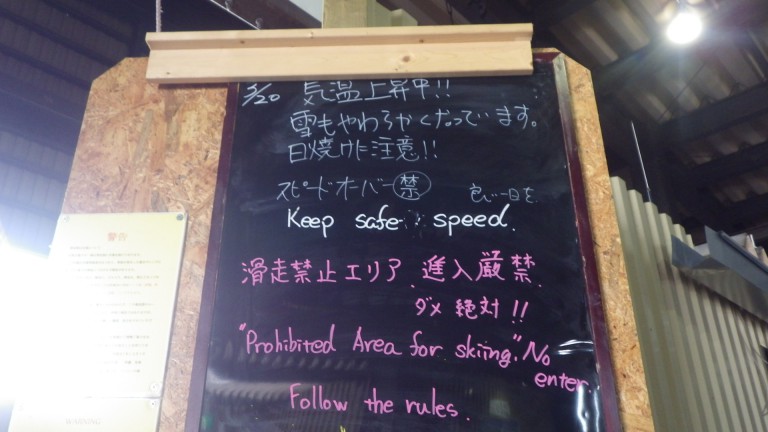 3/20 気温上昇中!!
雪もやわらかくなっています。
日焼けに注意!!
スピードオーバー禁 良い一日を
Keep safe speed.
滑走禁止エリア、進入厳禁
ダメ絶対!!
"Prohibited Area for skiing." No enter.
Follow the rules.
警告
WARNING